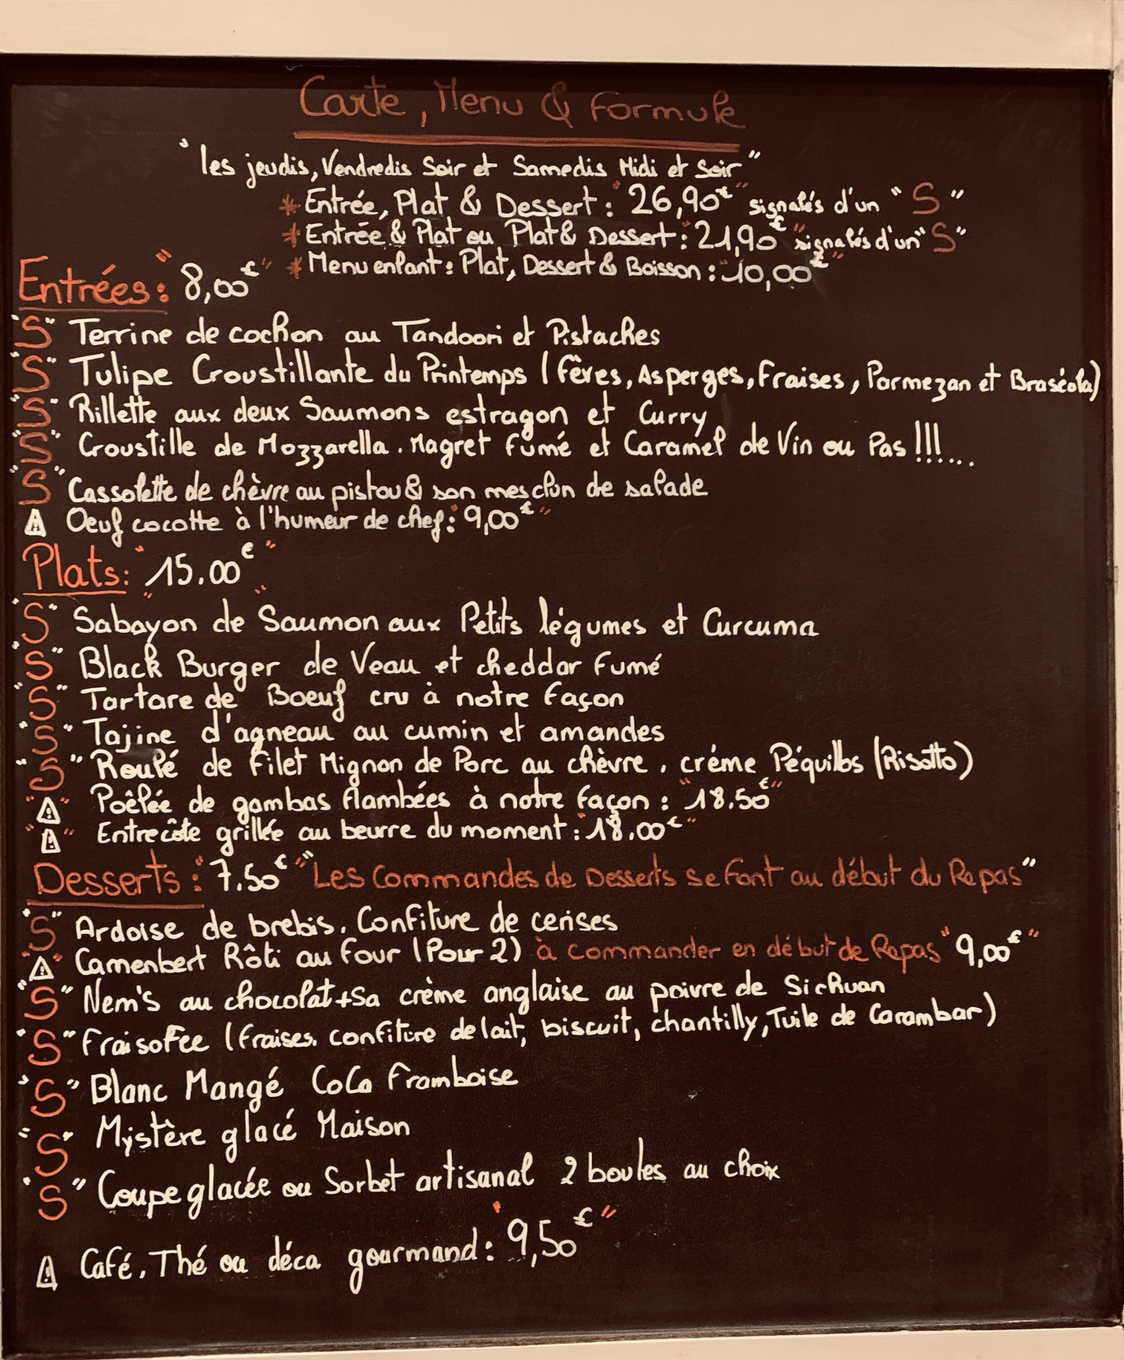 Carte, Menu & Formule
"les jeudis, Vendredis Soir et Samedis Midi et Soir"
* Entrée, Plat & Dessert : "26,90€" signalés d'un "S"
* Entrée & Plat ou Plat & Dessert : "21,90€" signalés d'un "S"
* Menu enfant : Plat, Dessert & Boisson : "10,00€"
Entrées : "8,00€"
"S" Terrine de cochon au Tandoori et Pistaches
"S" Tulipe Croustillante du Printemps (Fêves, Asperges, Fraises, Parmezan et Braséola)
"S" Rillette aux deux Saumons estragon et Curry
"S" Croustille de Mozzarella. Magret Fumé et Caramel de Vin ou Pas !!!...
"S" Cassolette de chèvre au pistou & son mesclun de salade
⚠ Oeuf cocotte à l'humeur de chef : "9,00€"
Plats : "15.00€"
"S" Sabayon de Saumon aux Petits légumes et Curcuma
"S" Black Burger de Veau et cheddar Fumé
"S" Tartare de Boeuf cru à notre Façon
"S" Tajine d'agneau au cumin et amandes
"S" Roulé de Filet Mignon de Porc au chèvre. créme Péquillos (Risotto)
"⚠" Poêlée de gambas flambées à notre Façon : "18.50€"
"⚠" Entrecôte grillée au beurre du moment : "18.00€"
Desserts : "7.50€" "Les Commandes de Desserts se Font au début du Repas"
"S" Ardoise de brebis. Confiture de cerises
"⚠" Camenbert Rôti au Four (Pour 2) à commander en début de Repas "9,00€"
"S" Nem's au chocolat+sa crème anglaise au poivre de Sichuan
"S" FraisoFee (Fraises. confiture de lait, biscuit, chantilly, Tuile de Carambar)
"S" Blanc Mangé CoCo Framboise
"S" Mystère glacé Maison
"S" Coupe glacée ou Sorbet artisanal 2 boules au choix
⚠ Café. Thé ou déca gourmand : "9,50€"